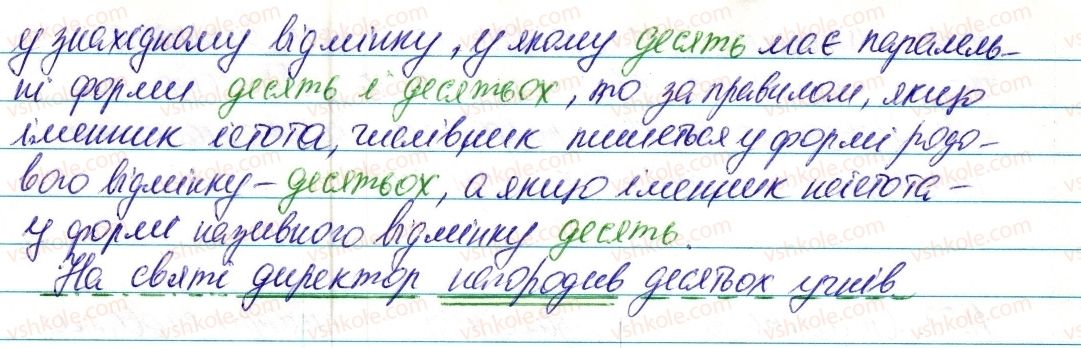 у знахідному відмінку, у якому десять має паралель-
ні форми десять і десятьох, то за правилом, якщо
іменник істота, числівник пишеться у формі родо-
вого відмінку – десятьох, а якщо іменник неістота –
у формі називного відмінку десять.
На святі директор нагородив десятьох учнів